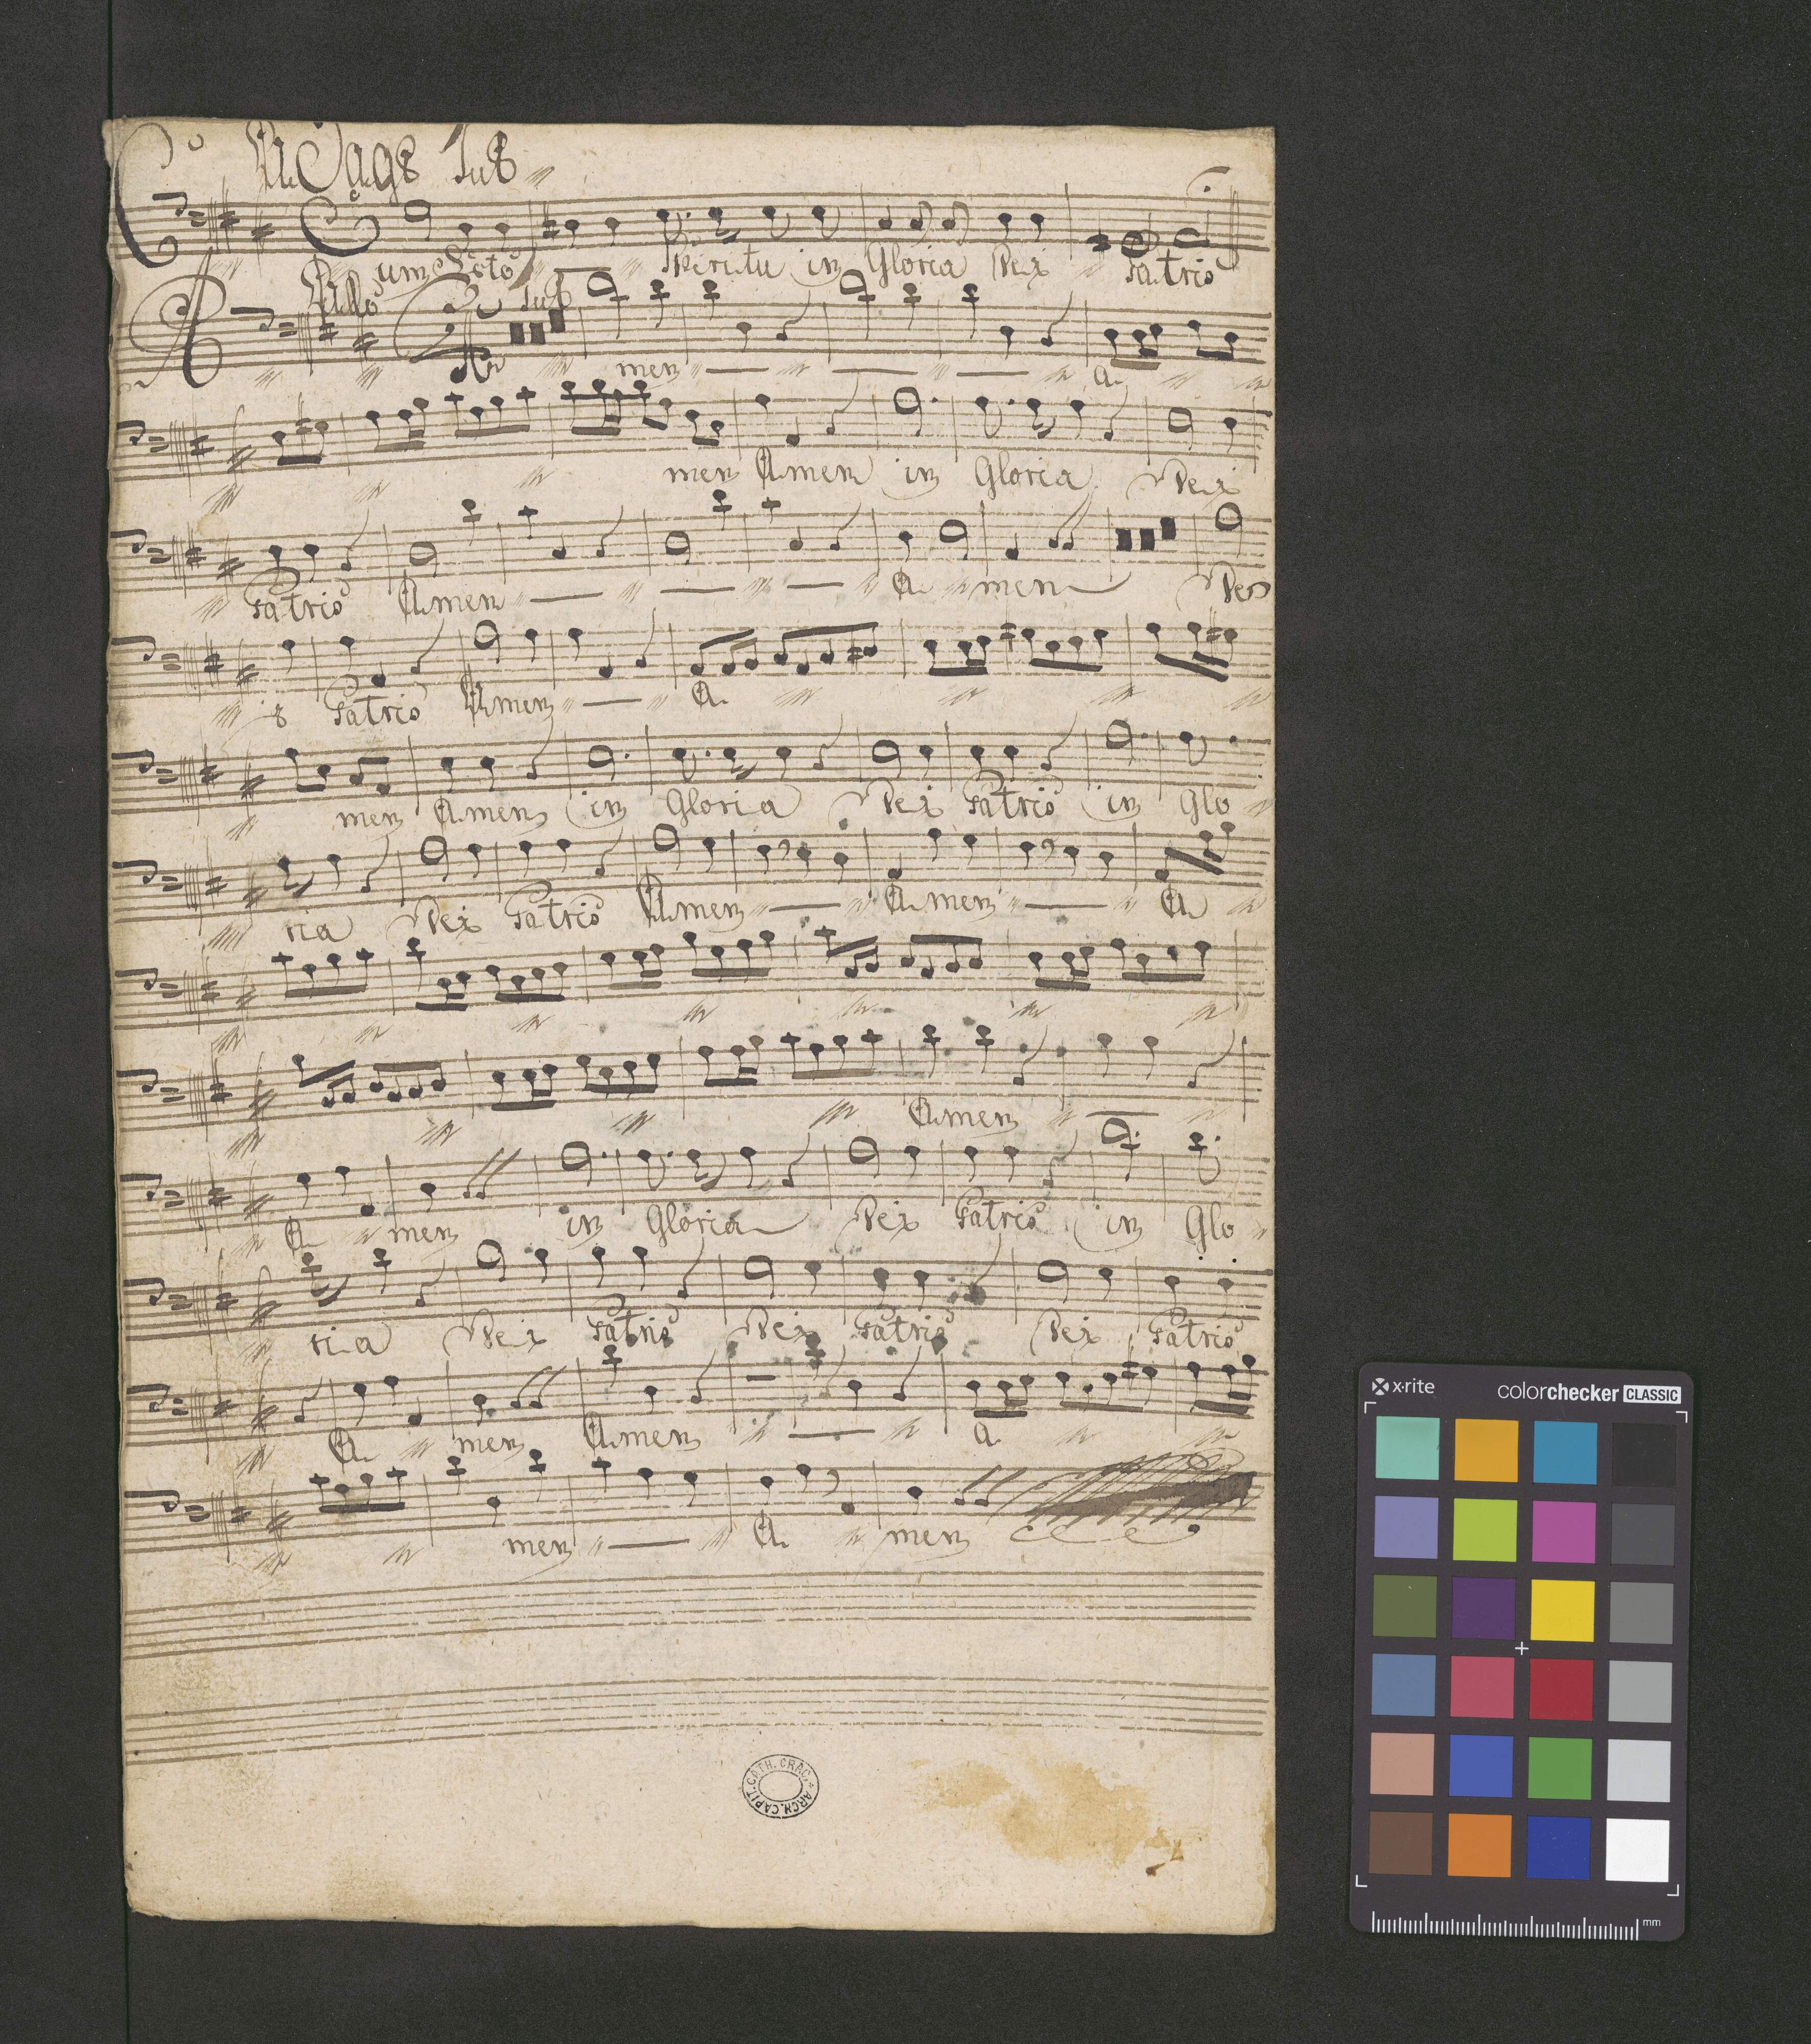 Adagº Tutti
Cum Sᶜto Spiritu in Gloria Dei Patris
Allº Tutti
Amen a
men Amen in Gloria Dei
Patris Amen A men De
i Patris Amen A
men Amen in Gloria Dei Patris in Glo
ria Dei Patris Amen Amen A
Amen
A men in Gloria Dei Patris in Glo
ria Dei Patris Dei Patris Dei Patris
A men Amen a
men A men
ARCH. CAPIT. CATH. CRAC.
x·rite colorchecker CLASSIC
mm